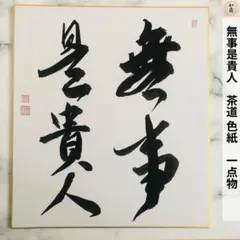 無事
是貴人
無事是貴人　茶道 色紙　一点物